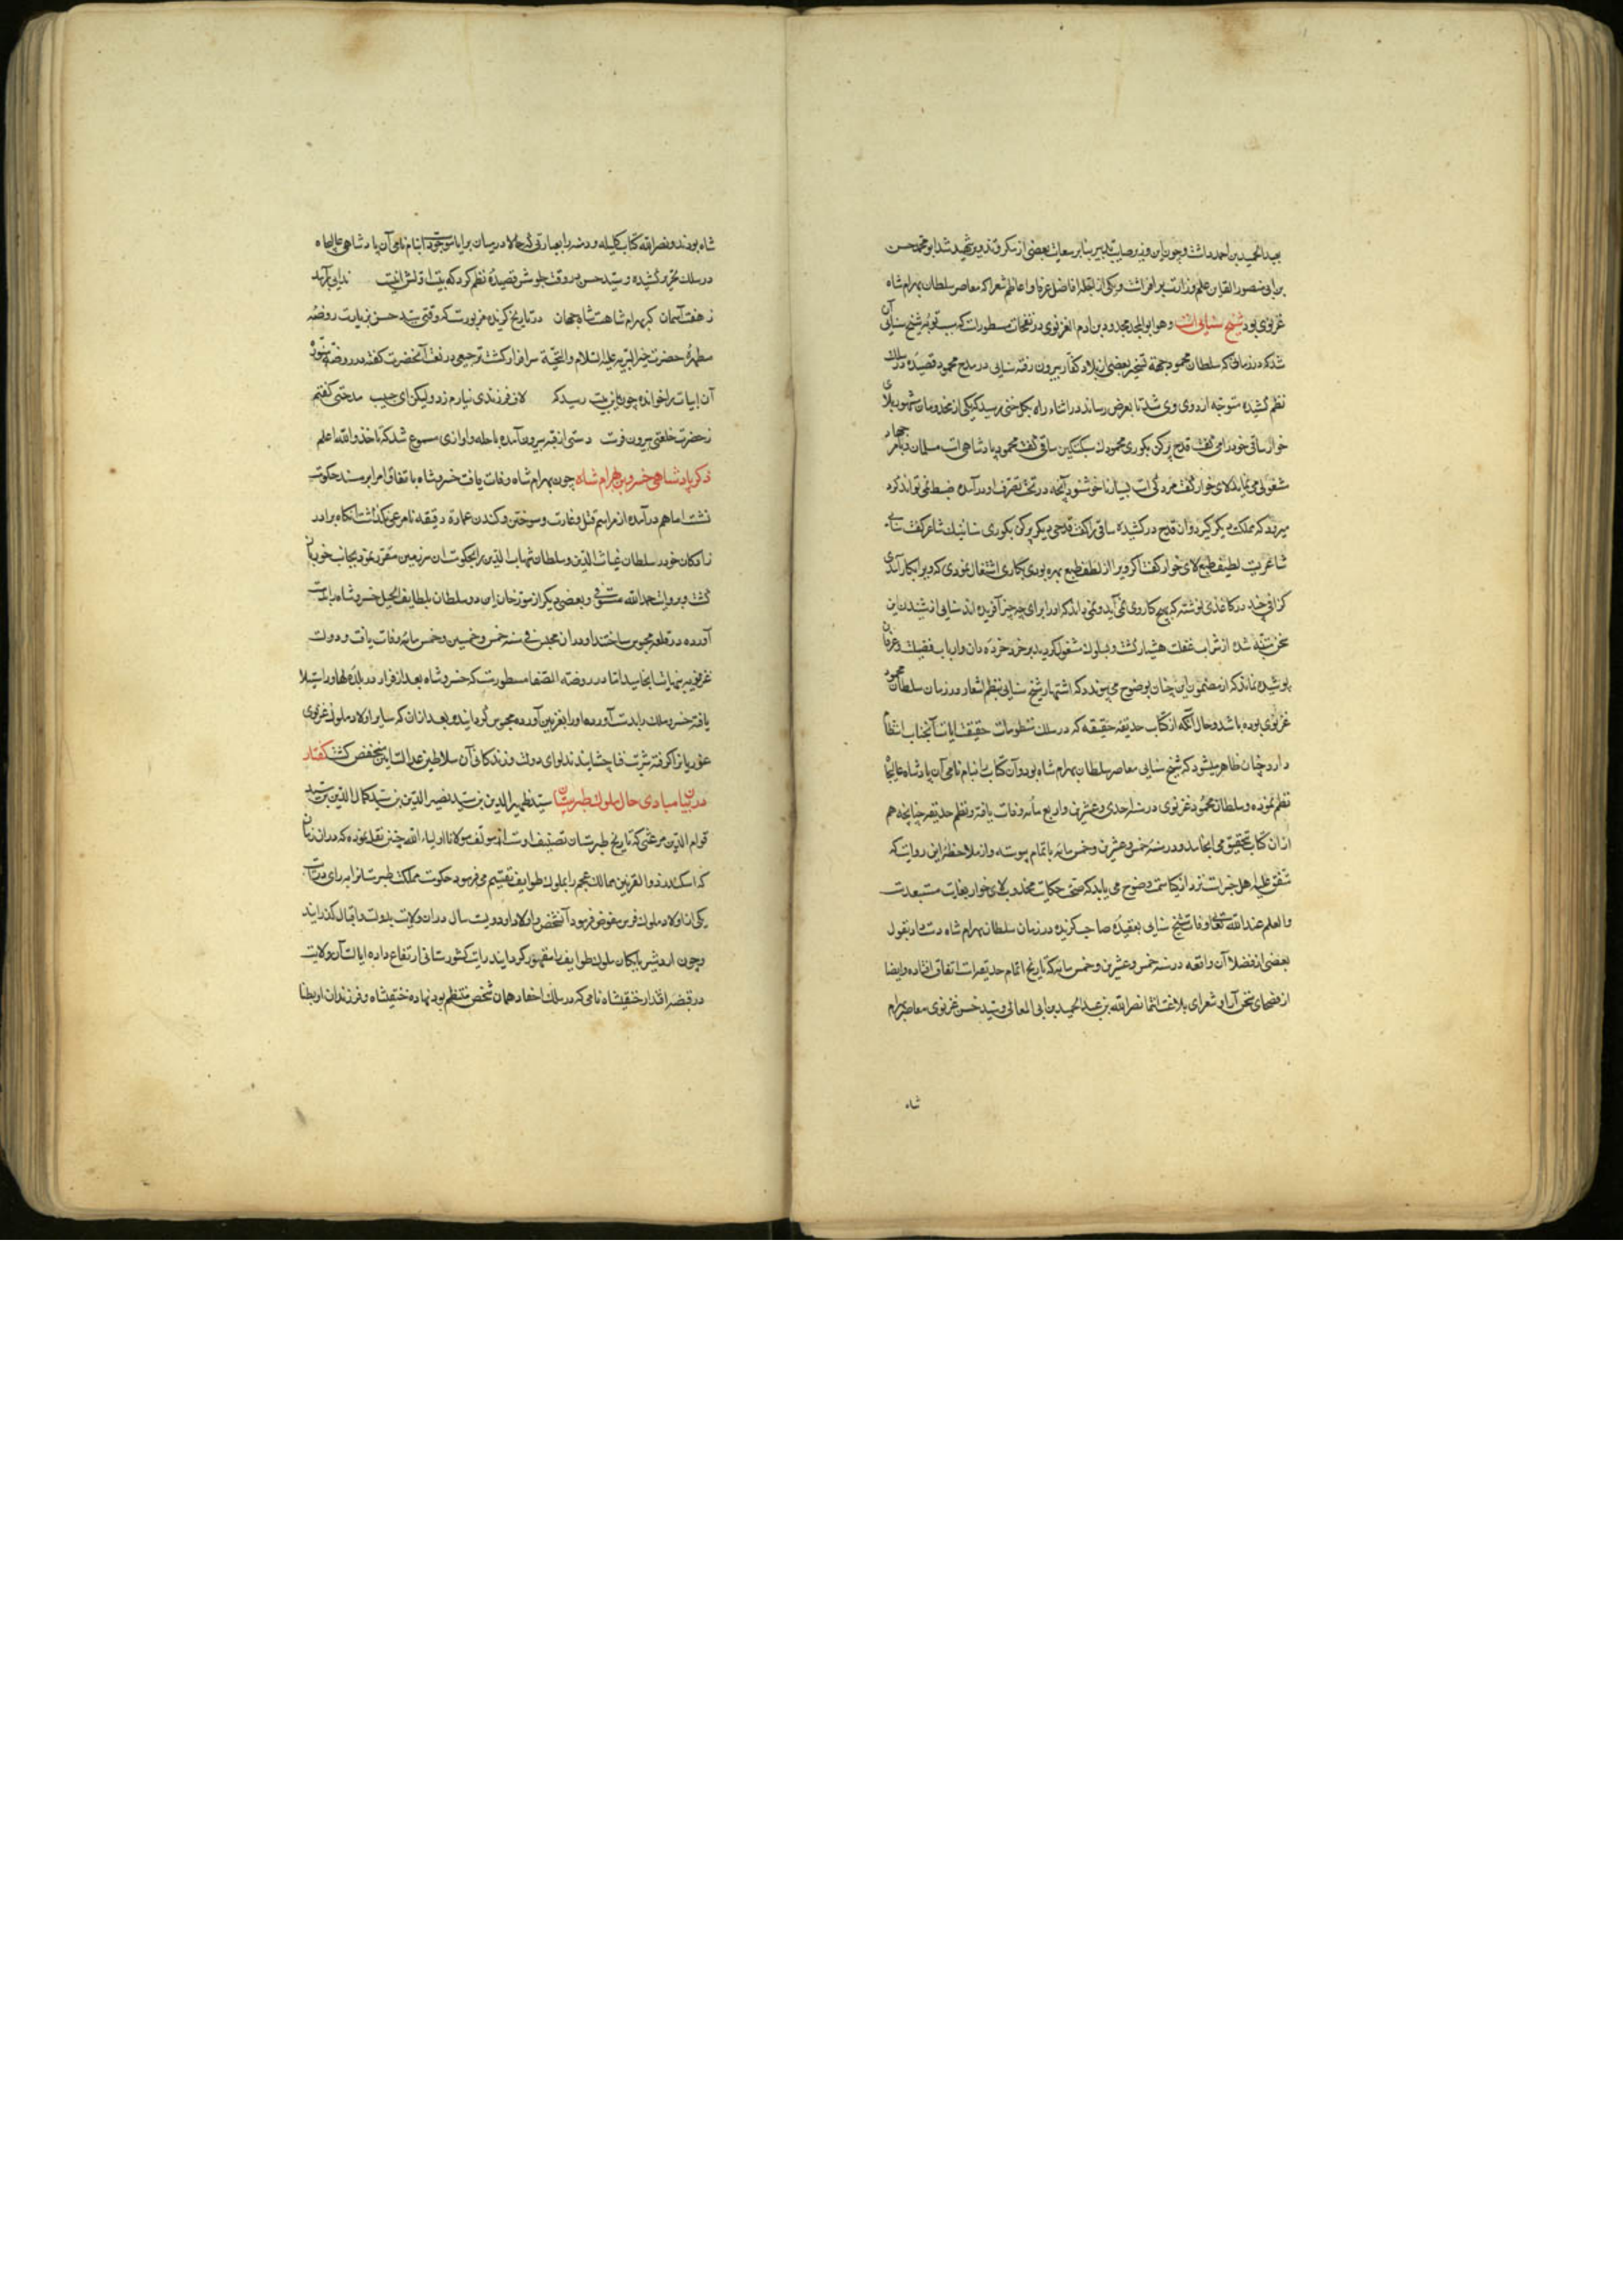 بعبدالحمید بن احمد داشت و چون این وزیر صایب تدبیر بنابر سعایت بعضی از مکر و تزویر شهید شد ابو محمد حسن
بن ابی منصور القاینی علم وزارت برافراشت و یکی از جمله افاضل عرفا و اعاظم شعرا که معاصر سلطان بهرام شاه
غزنوی بود شیخ سنایی است و هو ابوالمجد مجدود بن ادم الغزنوی در نفحات مسطورست که سبب توبه شیخ سنایی آن
شد که در زمانی که سلطان محمود جهة تسخیر بعضی از بلاد کفار بیرون رفته سنایی در مدح محمود قصیده در سلک
نظم کشیده متوجه اردوی وی شد تا بعرض رساند در اثناء راه بکلخنی رسید که یکی از مجذوبان مشهور بلای
خوار ساقی خود را می گفت قدحی پر کن بکوری محمودک سبکتکین ساقی گفت محمود پادشاهی است مسلمان و بامر جهاد
مشغولی می نماید لای خوار گفت مردکی است بسیار ناخوشنود آنچه در تحت تصرف او در آمده ضبط نمی تواند کرد
میرود که مملکت دیگر گیرد و آن قدح در کشیده ساقی را گفت قدحی دیگر پر کن بکوری سنائیک شاعر گفت سنایی
شاعریست لطیف طبع لای خوار گفت اگر ویرا از لطف طبع بهره بودی بکاری اشتغال نمودی که ویرا بکار آمدی
گزافی چند در کاغذی نوشته که بهیچ کار وی نمی آید و نمی داند که او را برای چه چیز آفریده اند سنایی از شنیدن این
سخن متنبه شده از شراب غفلت هشیار گشت و بسلوک مشغول گردید بر خرد خرده دان و ارباب فضیلت و عرفان
پوشیده نماند که از مضمون این چنان بوضوح می پیوندد که اشتهار شیخ سنایی بنظم اشعار در زمان سلطان محمود
غزنوی بوده باشد و حال آنکه از کتاب حدیقه حقیقه که در سلک منظومات حقیقت ایات آنجناب انتظام
دارد چنان ظاهر میشود که شیخ سنایی معاصر سلطان بهرام شاه بود و آن کتاب را بنام نامی آن پادشاه عالیجاه
نظم نموده و سلطان محمود غزنوی در سنه احدی و عشرین و اربع مأیه وفات یافته و نظم حدیقه چنانچه هم
از ان کتاب بتحقیق می انجامد در سنه خمس و عشرین و خمس مایه باتمام پیوسته و از ملاحظه این روایت که
متفق علیه اهل خبرات نزد اذکیا سمت وضوح می یابد که صحت حکایت مجذوب لای خوار بغایت مستبعدست
والعلم عندالله تعالی وفات شیخ سنایی بعقیده صاحب گزیده در زمان سلطان بهرام شاه دست داد و بقول
بعضی از فضلا آن واقعه در سنه خمس و عشرین و خمس مایه که تاریخ اتمام حدیقه است اتفاق افتاده و ایضا
از فصحای سخن آرا و شعرای بلاغت انتما نصرالله بن عبدالحمید بن ابی المعالی و سید حسن غزنوی معاصر بهرام
شاه
شاه بودند و نصرالله کتاب کلیله و دمنه را بعبارتی که حالا در میان برایا موجودست بنام نامی آن پادشاهی عالیجاه
در سلک تحریر کشیده و سید حسن در وقت جلوسش قصیده نظم کرد که بیت اولش اینست ندایی برآمد
ز هفت آسمان که بهرام شاهست شاه جهان در تاریخ گزیده مزبورست که وقتی سید حسن بزیارت روضه
مطهره حضرت خیر البریه علیه السلام والتحیة سرافراز گشته ترجیعی در نعت آنحضرت گفته در روضه منوره
آن ابیات را خوانده چون باین بیت رسید که لاف فرزندی نیارم زد ولیکن ای حبیب مدحتی گفتم
ز حضرت خلعتی بیرون فرست دستی از قبر بیرون آمده با حله و اوازی مسموع شد که خذ والله اعلم
ذکر پادشاهی خسرو بن بهرام شاه چون بهرام شاه وفات یافت خسرو شاه باتفاق امرا بر مسند حکومت
نشست اما هم در آمده از مراسم قتل و غارت و سوختن و کندن عمارة دقیقه نامرعی نگذاشت آنگاه برادر
زادگان خود سلطان غیاث الدین و سلطان شهاب الدین را بحکومت ان سرزمین مقرر نمود بجانب خود بازا
گشت و بروایت حمدالله مستوفی و بعضی دیگر از مورخان این دو سلطان بلطایف الحیل خسرو شاه را بدست
آورده در قلعه محبوس ساختند او در ان محبس فی سنه خمس و خمسین و خمس مایه وفات یافت و دولت
غزنویه بنهایت انجامید اما در روضة الصفا مسطورست که خسرو شاه بعد از فرار در بلده لهاور استیلا
یافته خسرو ملک را بدست آوردند و او را بغزنین آورده محبوس گردانیدند و بعد ازان که سایر اولاد ملوک غزنوی
غوریان را گرفته شربت فنا چشانیدند لوای دولت و زندگانی آن سلاطین عدالت آیین منخفض گشت گفتار
در بیان مبادی حال ملوک طبرستان سید ظهیر الدین بن سید نصیر الدین بن سید کمال الدین بن سید
قوام الدین مرعشی که تاریخ طبرستان تصنیف اوست از مولف مولانا اولیاء الله چنین نقل نموده که دران زمان
که اسکندر ذوالقرنین ممالک عجم را بملوک طوایف تقسیم می فرمود حکومت مملکت طبرستان را برای
یکی از اولاد ملوک فرس مفوض فرمود آن شخص و اولاد او دویست سال دران ولایت بدولت و اقبال گذرانیدند
و چون اردشیر بابکان ملوک طوایف را مقهور گردانید رایت کشورستانی ارتفاع داده ایالت آن ولایت
در قبضه اقتدار خشنفشاه نامی که در سلک احفاد همان شخص منتظم بود نهاده خشنفشاه و فرزندان او بطنا